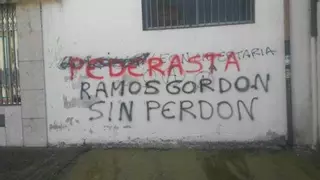 PEDERASTA
RAMOS GORDON
SIN PERDON